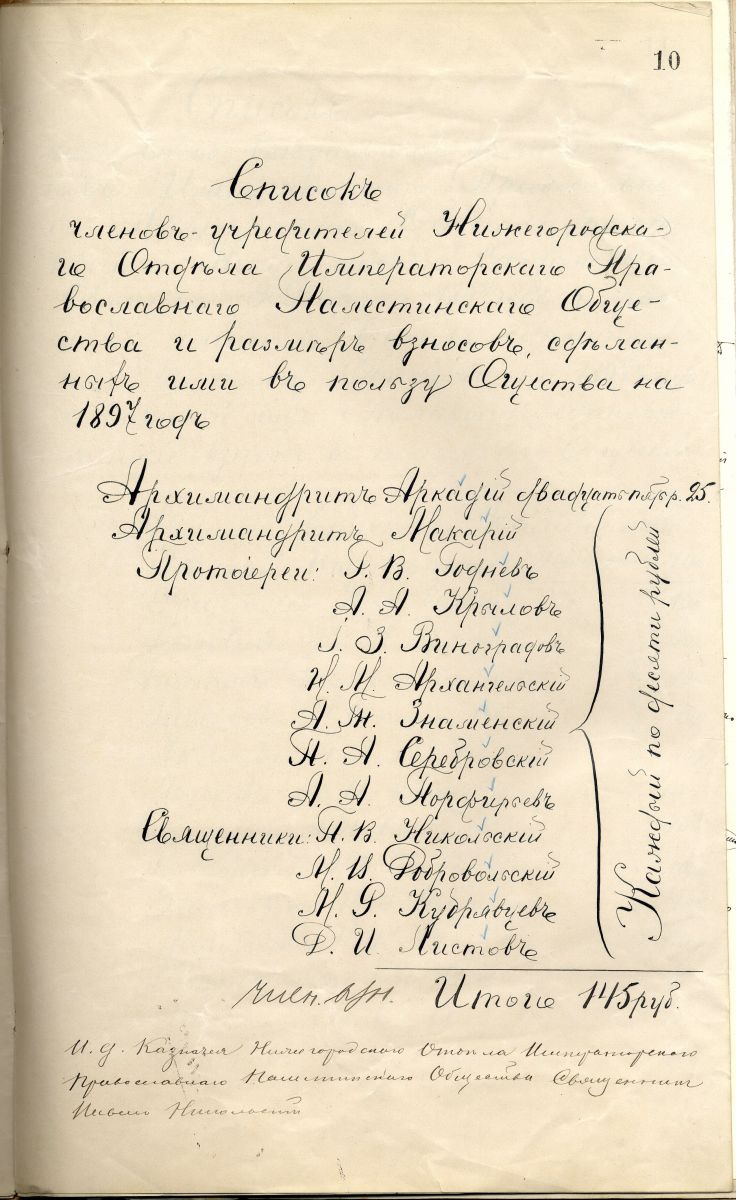 10
Списокъ
членовъ-учредителей Нижегородска-
го Отдѣла Императорскаго Пра-
вославнаго Палестинскаго Обще-
ства и размѣръ взносовъ, сдѣлан-
ныхъ ими въ пользу Ощества на
1897 годъ
Архимандритъ Аркадій двадцать пять р. 25.
Архимандритъ Макарій
Протоіереи: Г. В. Годневъ
А. А. Крыловъ
І. З. Виноградовъ
Н. М. Архангельскій
А. Т. Знаменскій
П. А. Серебровскій
А. П. Порфирьевъ
Священники: П. В. Никольскій
М. И. Добровольскій
М. Р. Кудрявцевъ
Д. И. Листовъ
Каждый по десяти рублей
член. взн. Итого 145 руб.
И. д. Казначея Нижегородского Отдѣла Императорского
Православнаго Палестинского Общества Священникъ
Павелъ Никольскій